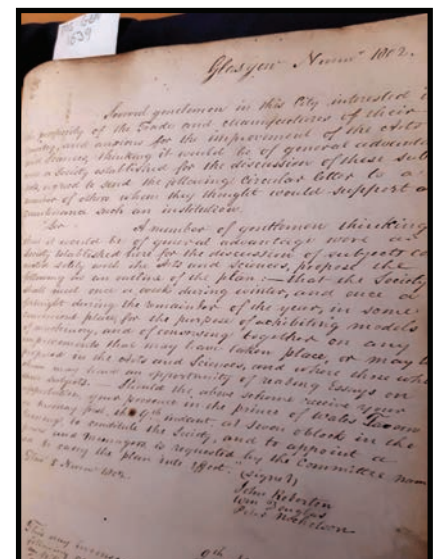 MS GEN
1639
Glasgow Novemr 1802.
Several gentlemen in this City interested
the prosperity of the Trade and Manufactures of their
Country, and anxious for the improvement of the Arts
and Sciences, thinking it would be of general advantage
were a Society established for the discussion of these sub
agreed to send the following Circular letter to a
number of others whom they thought would support a
such an institution.
Sir A number of gentlemen thinking
that it would be of general advantage were a
Society established here for the discussion of subjects co
with the Arts and Sciences, propose the
following as an outline of the plan:— that the Society
shall meet once a week during winter, and once a
fortnight during the remainder of the year, in some
convenient place, for the purpose of exhibiting models
of machinery, and of conversing together on any
improvements that may have taken place, or may be
proposed in the Arts and Sciences, and where those who
may have an opportunity of reading Essays on
subjects.— Should the above scheme receive your
approbation, your presence in the prince of Wales Tavern
on tuesday first, the 9th instant, at Seven oClock in the
evening, to constitute the Society, and to appoint a
and Managers is requested by the Committee nam
to carry the plan into effect.
8 Novr 1802.
(Signed)
John Roberton
Wm Douglas
Peter Nicholson
9th